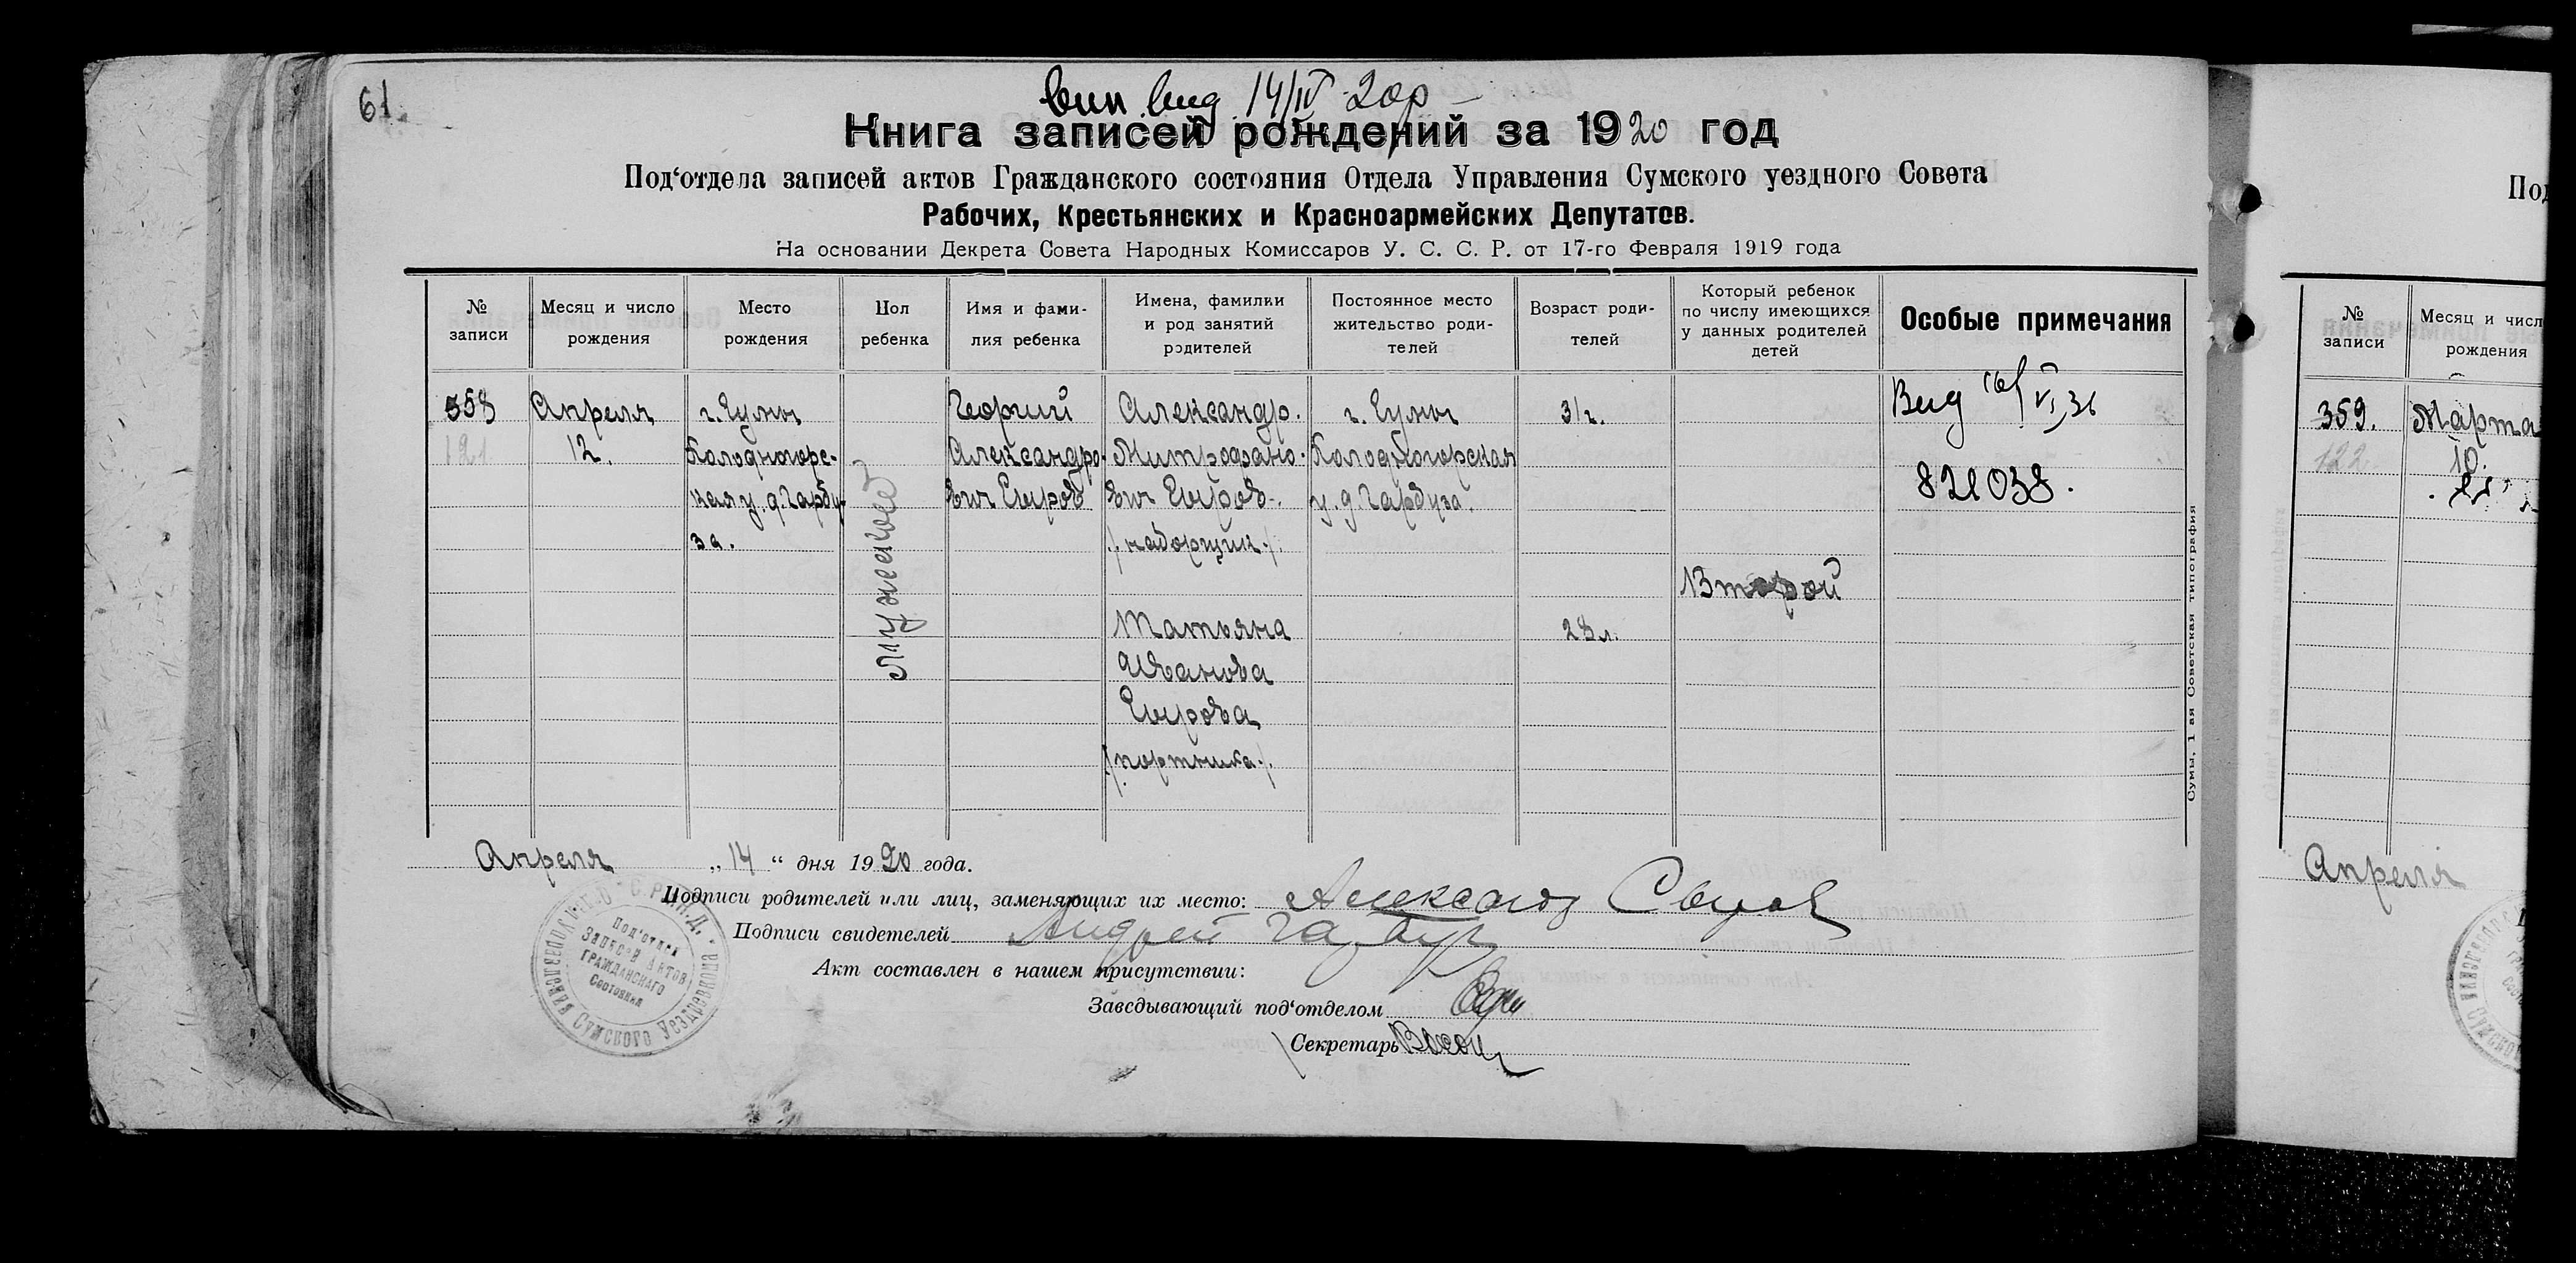 61.
вип. вид. 14/IV 20р
Книга записей рождений за 1920 год
Под‘отдела записей актов Гражданского состояния Отдела Управления Сумского уездного Совета
Рабочих, Крестьянских и Красноармейских Депутатов.
На основании Декрета Совета Народных Комиссаров У. С. С. Р. от 17-го Февраля 1919 года
№ записи
Месяц и число рождения
Место рождения
Пол ребенка
Имя и фамилия ребенка
Имена, фамилки и род занятий родителей
Постоянное место жительство родителей
Возраст родителей
Который ребенок по числу имеющихся у данных родителей детей
Особые примечания
358
121
Апреля
12.
г. Сумы
Холодногорс-
кая у. д. Гарбу-
за.
мужской
Георгий
Александро-
вич Сыров
Александр.
Митрофано-
вич Сыров.
/наборщик/.
Татьяна
Иванова
Сырова
/портниха/.
г. Сумы
Холодногорская
у. д. Гарбуза.
31г.
28л.
Второй
Вид
VI, 36
821038.
Сумы, 1 ая Советская типография
Апреля „14“ дня 1920 года.
Подписи родителей или лиц, заменяющих их место: Александр Сыров
Подписи свидетелей Андрей Гарбуз
Акт составлен в нашем присутствии:
Заведывающий под‘отделом
Секретарь
Под‘отдел
Записей Актов
Гражданского
Состояния
Сумского Уездревкома
Под
№ записи
Месяц и числ
рождения
359.
122
Марта
10.
Апреля